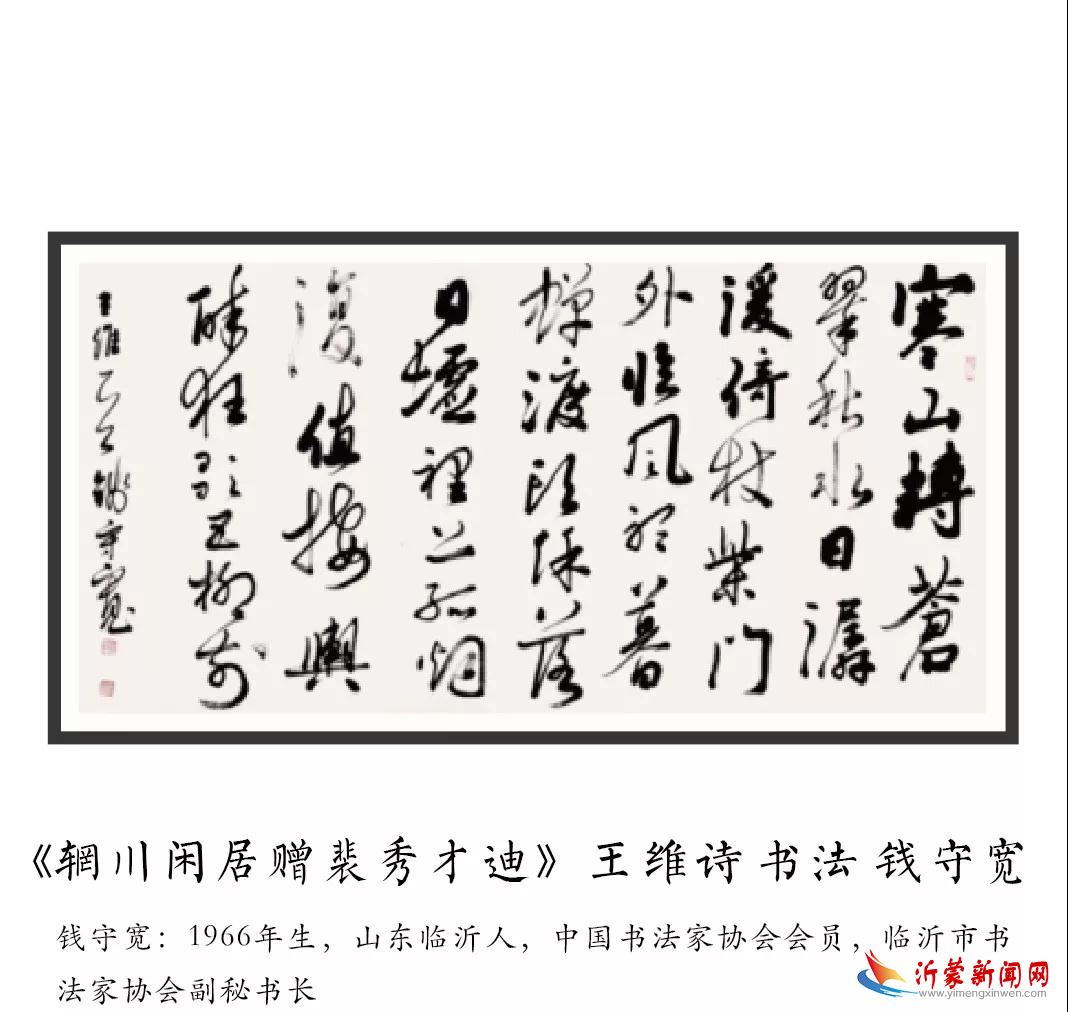 寒山轉蒼
翠秋水日潺
湲倚杖柴门
外临风聽暮
蟬渡頭餘落
日墟裡上孤烟
復值接輿
醉狂歌五柳前
王維 錢守寬
《辋川闲居赠裴秀才迪》王维诗 书法 钱守宽
钱守宽：1966年生，山东临沂人，中国书法家协会会员，临沂市书
法家协会副秘书长
沂蒙新闻网
www.yimengxinwen.com